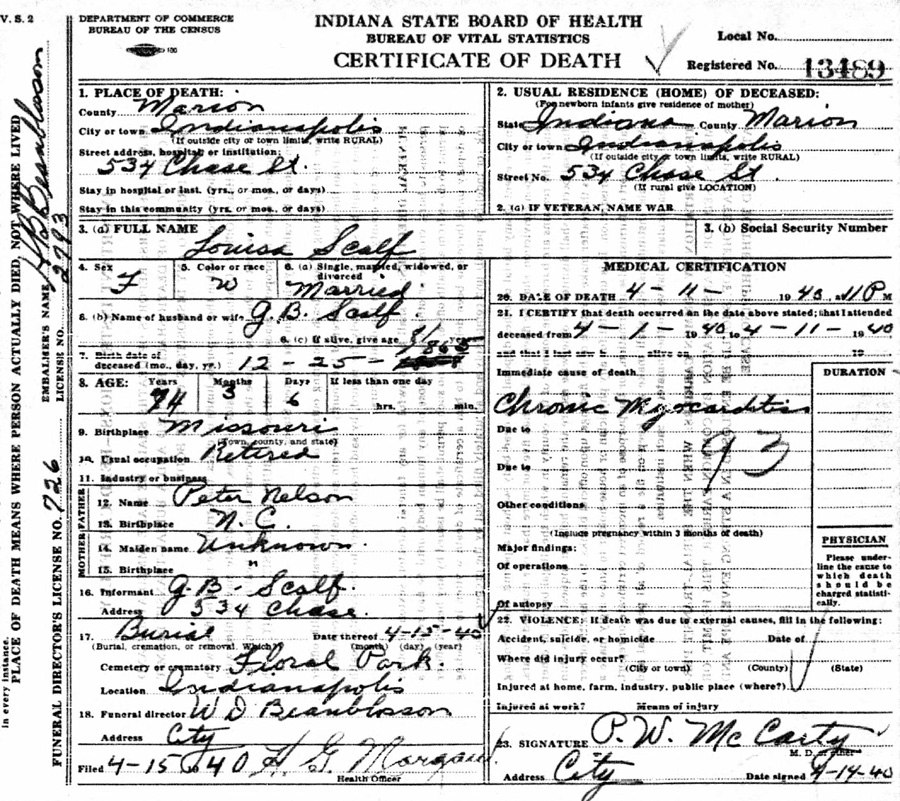 V. S. 2
DEPARTMENT OF COMMERCE
BUREAU OF THE CENSUS
INDIANA STATE BOARD OF HEALTH
BUREAU OF VITAL STATISTICS
CERTIFICATE OF DEATH
Local No.
Registered No. 13489
1. PLACE OF DEATH:
County Marion
City or town Indianapolis
(If outside city or town limits, write RURAL)
Street address, hospital or institution:
534 Chase St.
Stay in hospital or inst. (yrs., or mos., or days)
Stay in this community (yrs, or mos., or days)
2. USUAL RESIDENCE (HOME) OF DECEASED:
(For newborn infants give residence of mother)
State Indiana County Marion
City or town Indianapolis
(If outside city or town limits, write RURAL)
Street No. 534 Chase St
(If rural give LOCATION)
2. (a) IF VETERAN, NAME WAR
3. (a) FULL NAME
Louisa Scalf
3. (b) Social Security Number
4. Sex
F
5. Color or race
W
6. (a) Single, married, widowed, or divorced
Married
6. (b) Name of husband or wife G. B. Scalf
6. (c) If alive, give age 81 yrs.
7. Birth date of
deceased (mo., day, yr.) 12 - 25 - 1865
8. AGE: Years Months Days If less than one day
74 3 6 hrs. min.
9. Birthplace Missouri
(Town, county, and state)
10. Usual occupation Retired
11. Industry or business
FATHER
12. Name Peter Nelson
13. Birthplace N. C.
MOTHER
14. Maiden name Unknown
15. Birthplace "
16. Informant G. B. Scalf
Address 534 Chase.
17. Burial Date thereof 4-15-40
(Burial, cremation, or removal. Which?) (month) (day) (year)
Cemetery or crematory Floral Park.
Location Indianapolis
18. Funeral director W D Beanblosson
Address City
Filed 4-15 1940 H. G. Morgan
Health Officer
MEDICAL CERTIFICATION
20. DATE OF DEATH 4 - 11 - 1940, at 11 P M
21. I CERTIFY that death occurred on the date above stated; that I attended
deceased from 4 - 1 - 1940, to 4 - 11 - 1940
and that I last saw h alive on 19
Immediate cause of death
DURATION
Chronic Myocarditis
Due to
93
Due to
Other conditions
(Include pregnancy within 3 months of death)
Major findings:
Of operations
Of autopsy
PHYSICIAN
Please under-
line the cause to
which death
should be
charged statisti-
cally.
22. VIOLENCE: If death was due to external causes, fill in the following:
Accident, suicide, or homicide Date of
Where did injury occur?
(City or town) (County) (State)
Injured at home, farm, industry, public place (where?)
Injured at work? Means of injury
23. SIGNATURE P. W. McCarty
M. D. or other
Address City Date signed 4-14-40
in every instance.
PLACE OF DEATH MEANS WHERE PERSON ACTUALLY DIED, NOT WHERE LIVED
EMBALMER'S NAME H B Beanblosson
LICENSE NO. 2793
FUNERAL DIRECTOR'S LICENSE NO. 726